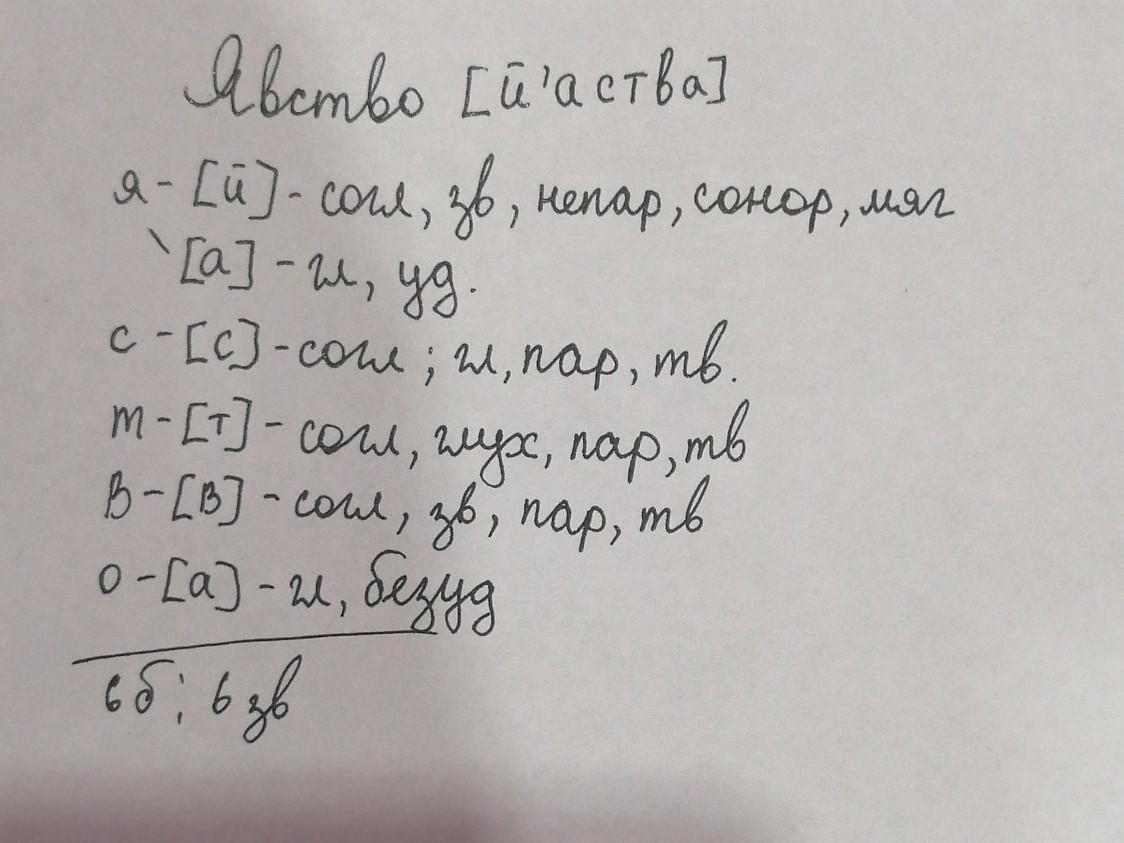 Явство [й'аства]
я - [й] - согл, зв, непар, сонор, мяг
[а] - гл, уд.
с - [с] - согл; гл, пар, тв.
т - [т] - согл, глух, пар, тв
в - [в] - согл, зв, пар, тв
о - [а] - гл, безуд
6 б; 6 зв